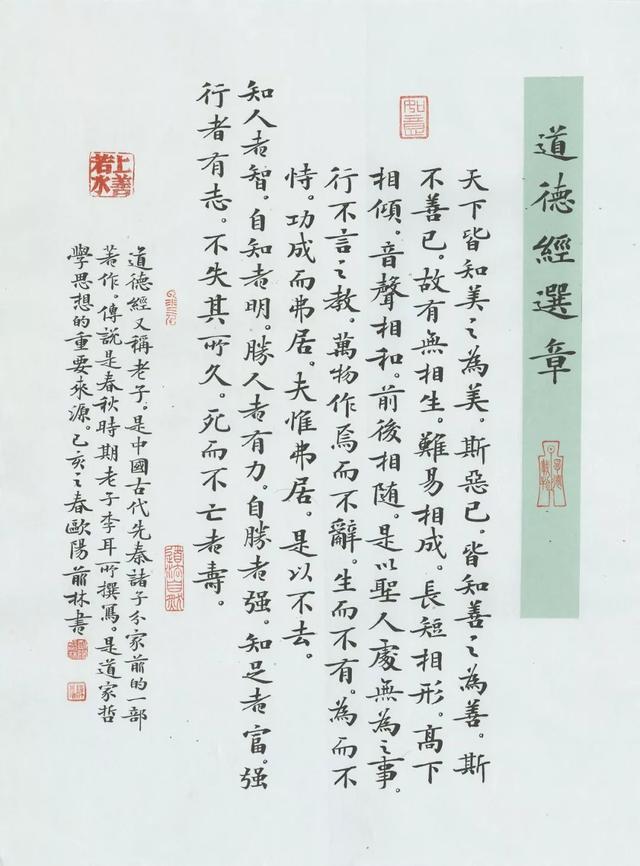 道德經選章
如意
天下皆知美之為美。斯惡已。皆知善之為善。斯
不善已。故有無相生。難易相成。長短相形。高下
相傾。音聲相和。前後相隨。是以聖人處無為之事。
行不言之教。萬物作焉而不辭。生而不有。為而不
恃。功成而弗居。夫惟弗居。是以不去。
知人者智。自知者明。勝人者有力。自勝者强。知足者富。强
行者有志。不失其所久。死而不亡者壽。
道法自然
上善若水
道德經又稱老子。是中國古代先秦諸子分家前的一部
著作。傳說是春秋時期老子李耳所撰寫。是道家哲
學思想的重要來源。己亥之春歐陽前林書